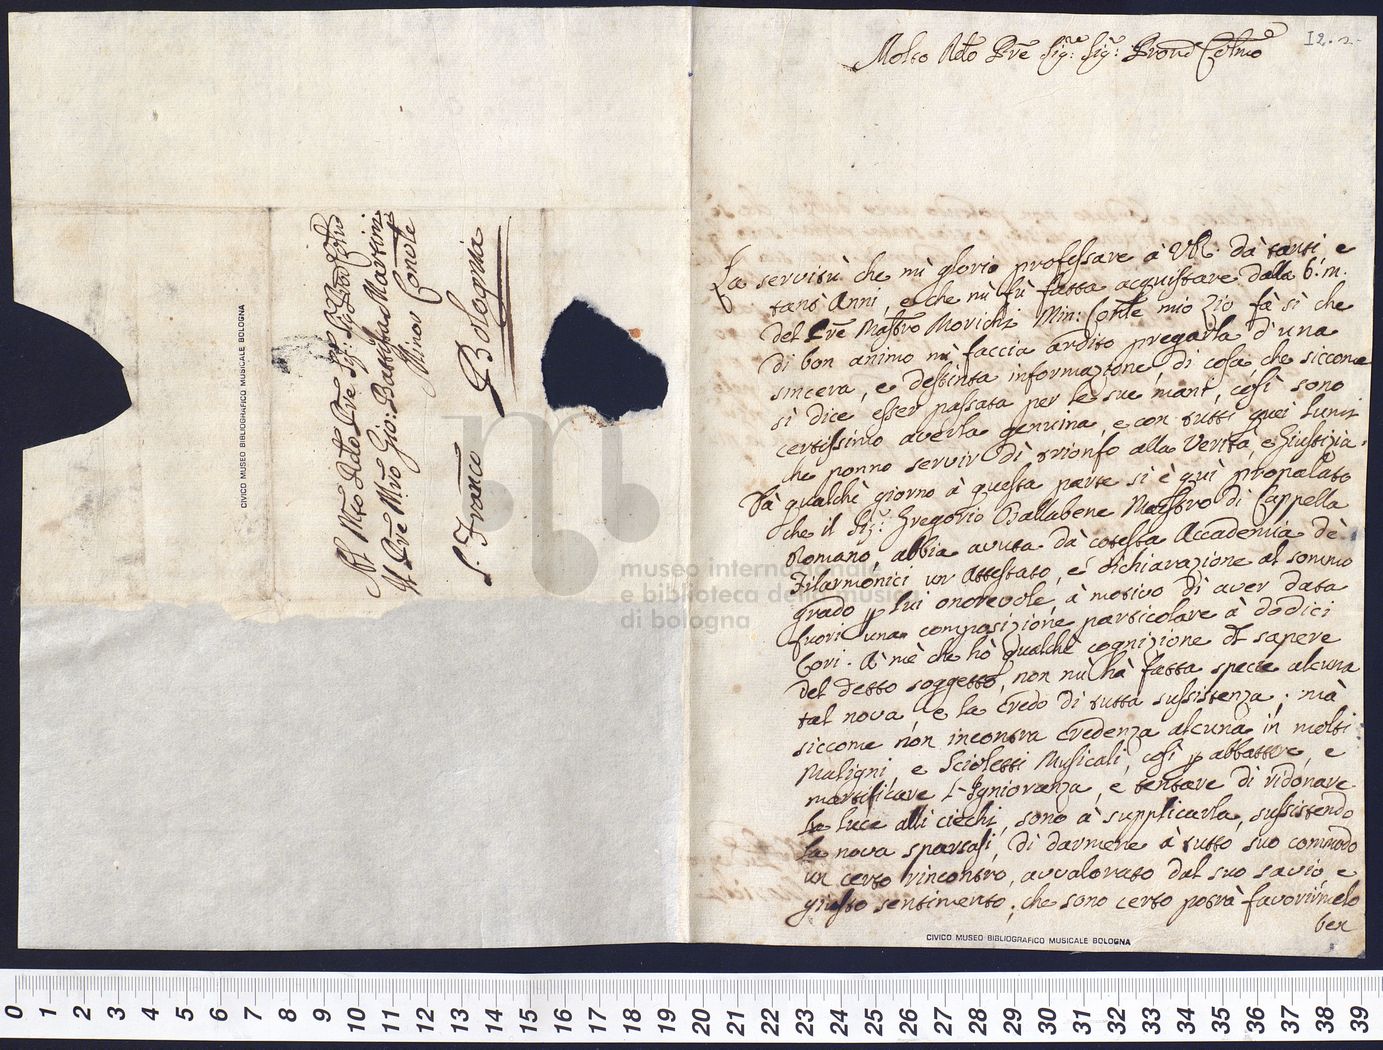 I2. 2.
Molto Rdo Pre Sigr: Sigr: Prone Colmo
La servitù che mi glorio professare à VR. dà tanti, e
tant'Anni, e che mi fù fatta acquistare dalla b: m:
del Pre Maestro Morichi Min: Conle mio Zio fà sì che
di bon animo mi faccia ardito pregarla d'una
sincera, e destinta informazione di cosa, che siccome
si dice esser passata per le sue mani, così sono
certissimo averla genuina, e con tutti quei lumi
che ponno servir di trionfo alla Verità, e Giustizia.
Dà qualchè giorno à questa parte si è quì propalato
che il Sigr: Gregorio Ballabene Maestro di Cappella
Romano abbia avuta dà cotesta Accademia dè
Filarmonici un Attestato, e dichiarazione al sommo
grado p lui onorevole, à motivo di aver data
fuori una composizione particolare à dodici
Cori. A' mè che hò qualchè cognizione del sapere
del detto soggetto, non mi hà fatta specie alcuna
tal nova, e la credo di tutta sussistenza; mà
siccome non incontra credenza alcuna in molti
Maligni, e Scioletti Musicali, così p abbattere, e
mortificare l'Ignioranza, e tentare di ridonare
la luce alli ciechi, sono à supplicarla, sussistendo
la nova sparsasi, di darmene à tutto suo commodo
un certo rincontro, avvalorato dal suo savio, e
giusto sentimento; che sono certo potrà favorirmelo
ben
CIVICO MUSEO BIBLIOGRAFICO MUSICALE BOLOGNA
Al Mto Rdo Pre Sigr: Sigr: Prone Colmo
Il Pre Mro Gio: Battista Martini
Minor Conule
S. Franco Bologna
CIVICO MUSEO BIBLIOGRAFICO MUSICALE BOLOGNA
museo internazionale
e biblioteca della musica
di bologna
0 1 2 3 4 5 6 7 8 9 10 11 12 13 14 15 16 17 18 19 20 21 22 23 24 25 26 27 28 29 30 31 32 33 34 35 36 37 38 39